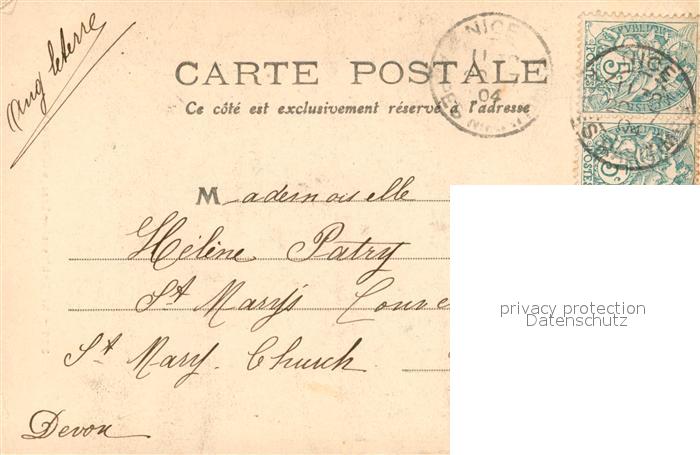 Angleterre
CARTE POSTALE
Ce côté est exclusivement réservé à l'adresse
NICE
04
RÉPUBLIQUE
5
POSTES
NICE
5
POSTES
Mademoiselle
Hélène Patry
St Mary's Conve
St Mary. Church.
Devon
privacy protection
Datenschutz